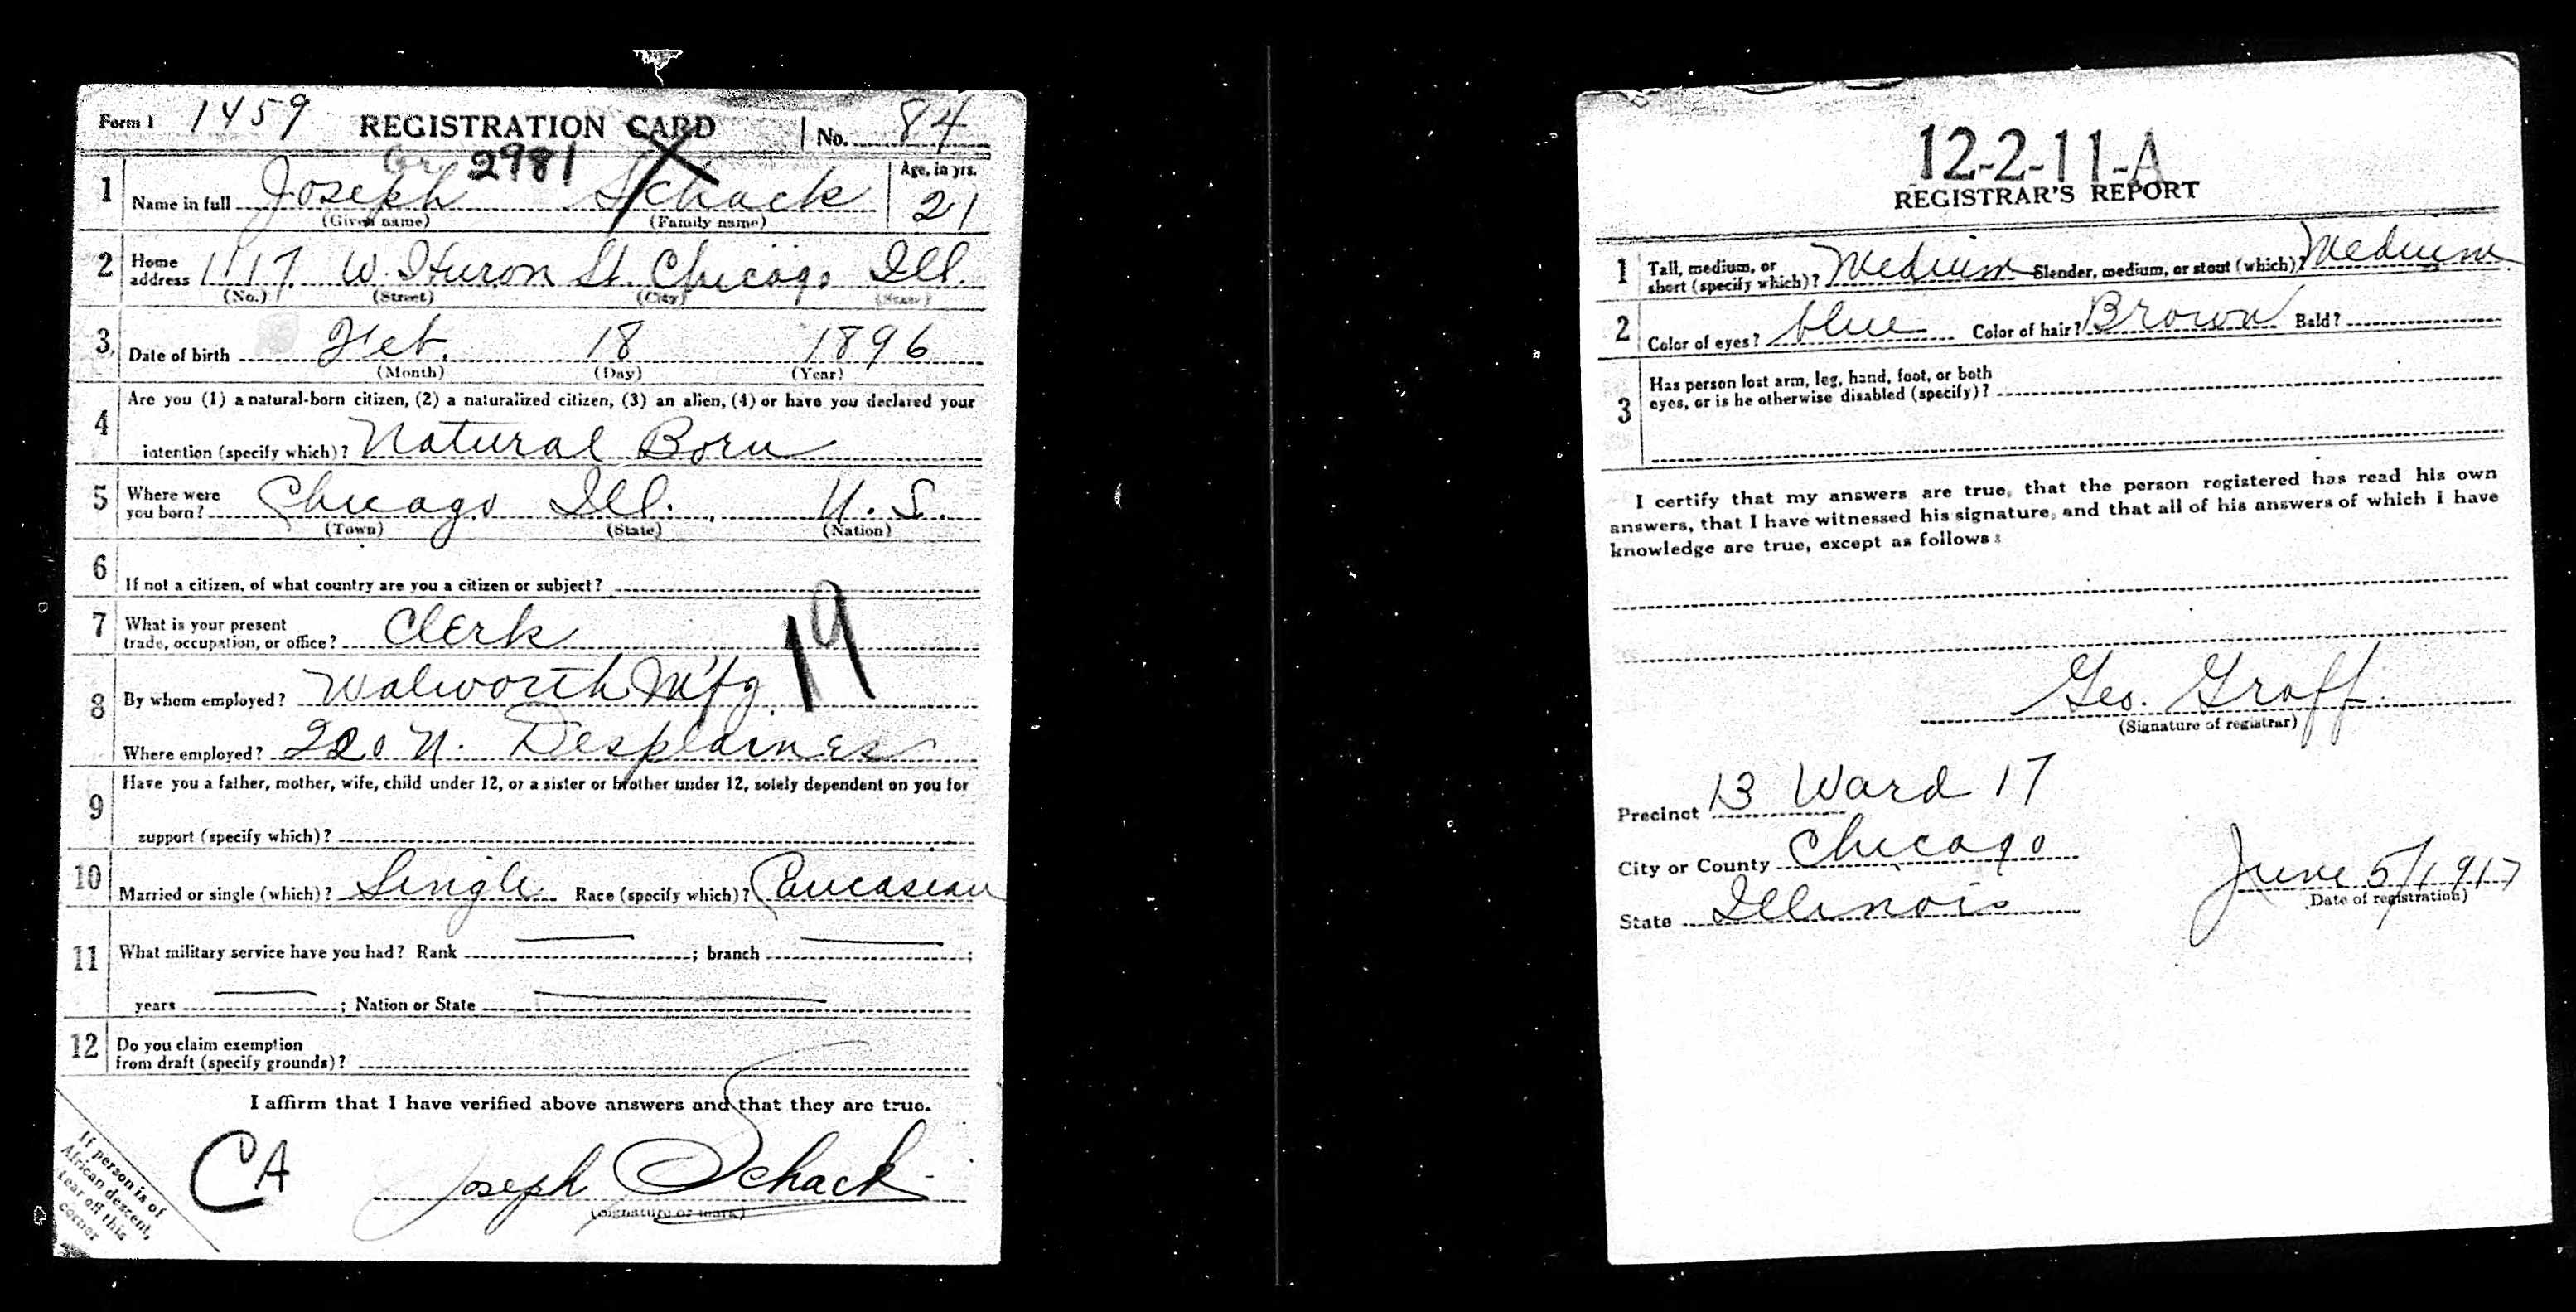 Form 1 1459 REGISTRATION CARD No. 84
2981
1 Name in full Joseph Schack Age, in yrs. 21
(Given name) (Family name)
2 Home address 1117 W. Huron St. Chicago Ill.
(No.) (Street) (City) (State)
3 Date of birth Feb. 18 1896
(Month) (Day) (Year)
4 Are you (1) a natural-born citizen, (2) a naturalized citizen, (3) an alien, (4) or have you declared your
intention (specify which)? Natural Born
5 Where were you born? Chicago Ill. U.S.
(Town) (State) (Nation)
6 If not a citizen, of what country are you a citizen or subject?
7 What is your present
trade, occupation, or office? Clerk
19
8 By whom employed? Walworth Mfg
Where employed? 220 N. Desplaines
9 Have you a father, mother, wife, child under 12, or a sister or brother under 12, solely dependent on you for
support (specify which)?
10 Married or single (which)? Single Race (specify which)? Caucasian
11 What military service have you had? Rank ; branch ;
years ; Nation or State
12 Do you claim exemption
from draft (specify grounds)?
I affirm that I have verified above answers and that they are true.
If person is of
African descent,
tear off this
corner
CA Joseph Schack
(Signature or mark)
12-2-11-A
REGISTRAR'S REPORT
1 Tall, medium, or
short (specify which)? Medium Slender, medium, or stout (which)? Medium
2 Color of eyes? blue Color of hair? Brown Bald?
3 Has person lost arm, leg, hand, foot, or both
eyes, or is he otherwise disabled (specify)?
I certify that my answers are true, that the person registered has read his own
answers, that I have witnessed his signature, and that all of his answers of which I have
knowledge are true, except as follows:
Geo. Groff
(Signature of registrar)
Precinct 13 Ward 17
City or County Chicago
State Illinois
June 5/1917
(Date of registration)